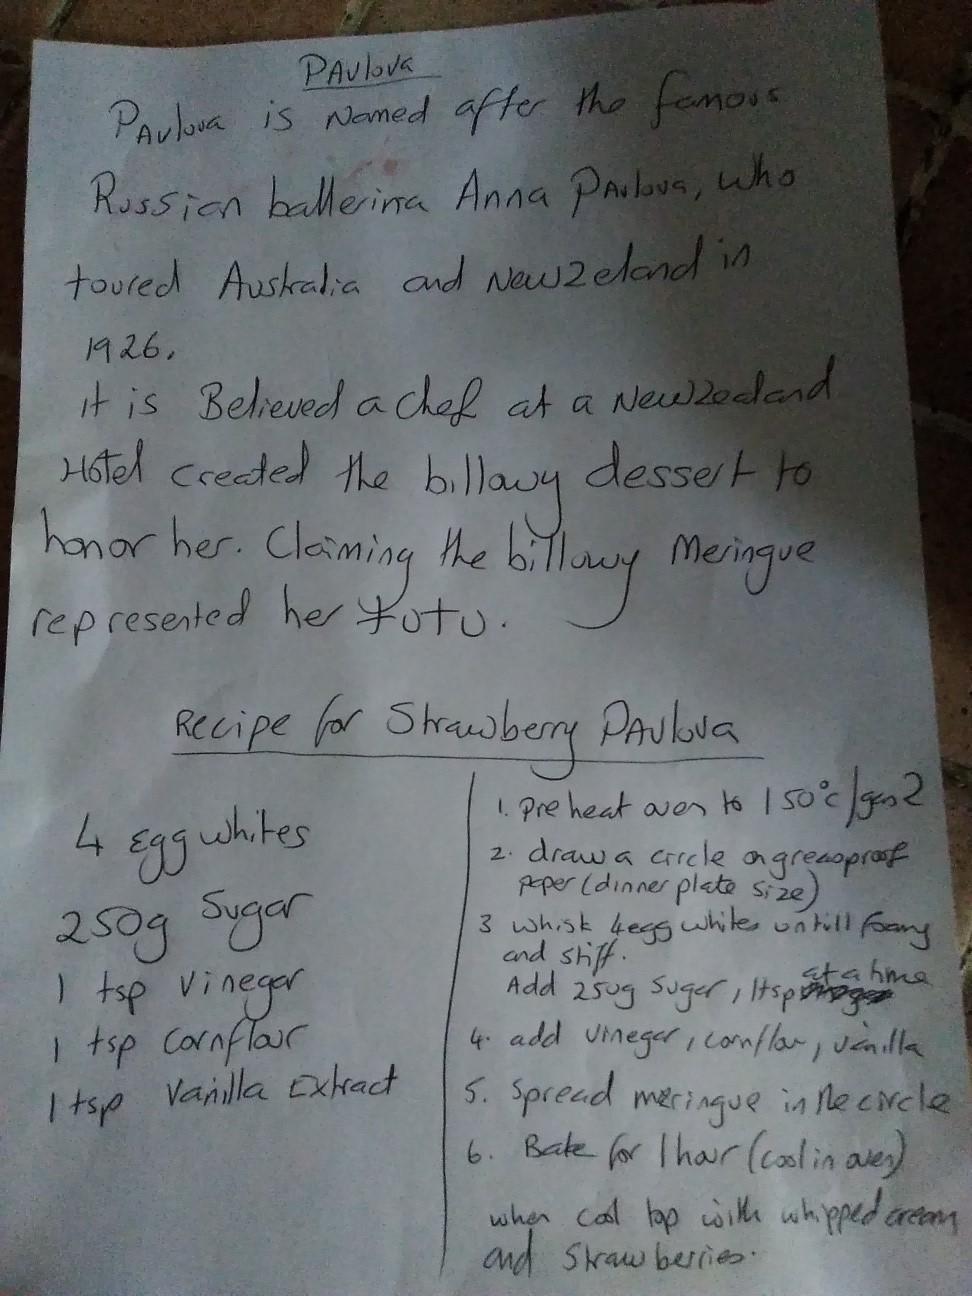 PAvlova
PAvlova is Named after the famous
Russian ballerina Anna PAvlova, who
toured Australia and New Zeland in
1926.
it is Believed a chef at a New Zealand
Hotel created the billowy dessert to
honor her. Claiming the billowy Meringue
represented her tutu.
Recipe for Strawberry PAvlova
4 Egg whites
250g Sugar
1 tsp vinegar
1 tsp cornflour
1 tsp Vanilla Extract
1. preheat oven to 150°c/gas 2
2. draw a circle on greaseproof
paper (dinner plate size)
3 whisk 4 egg whites untill foamy
and stiff.
Add 250g Sugar, 1tsp at a time
4. add vinegar, cornflour, vanilla
5. Spread meringue in the circle
6. Bake for 1 hour (cool in oven)
when cool top with whipped cream
and Strawberries.